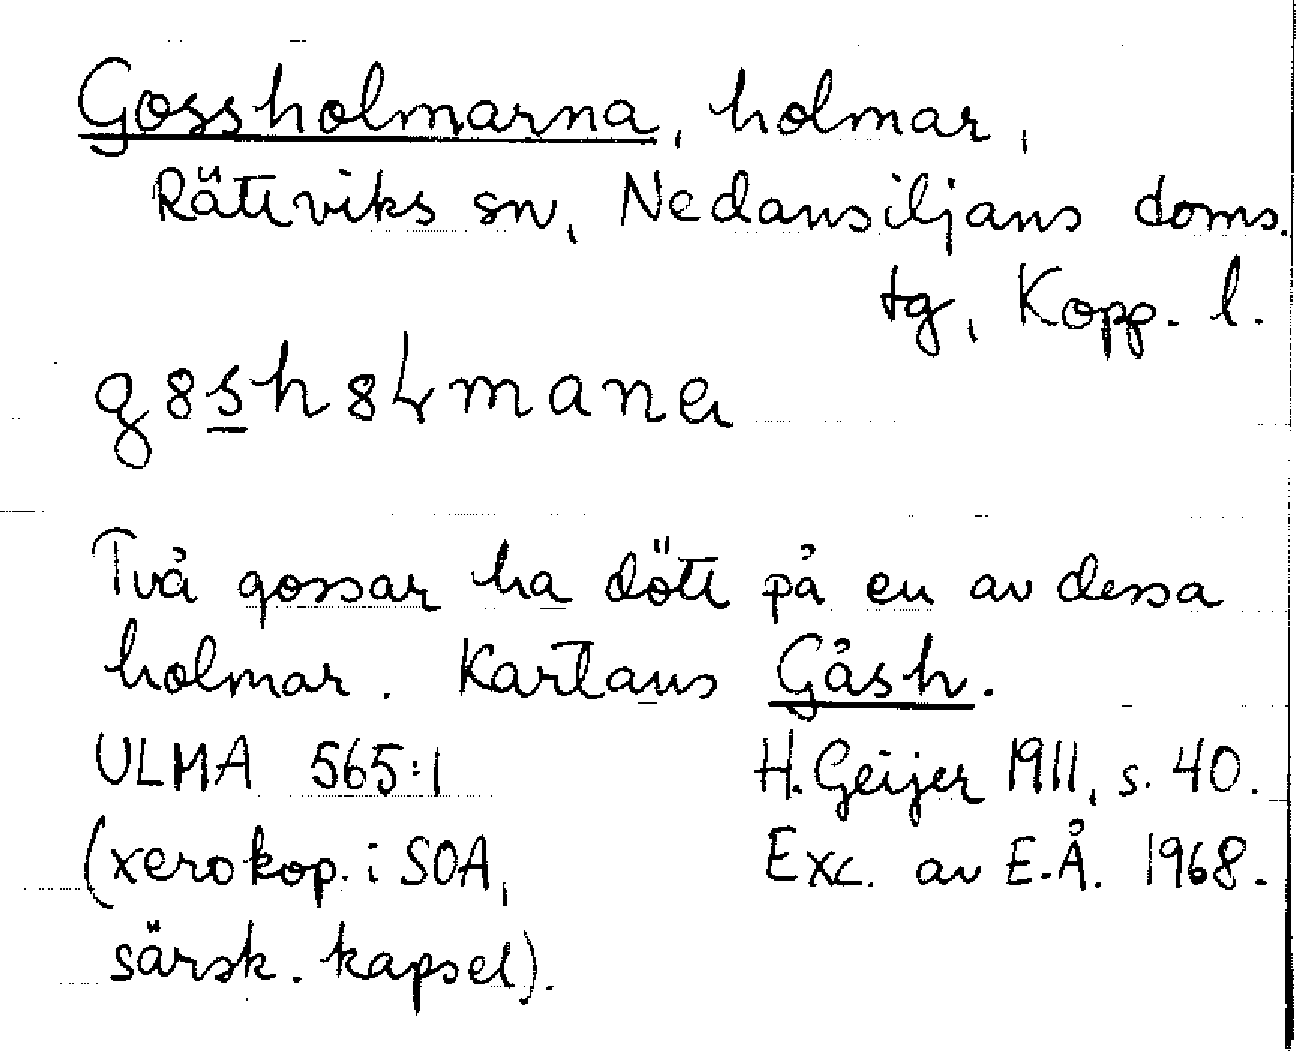 Gossholmarna, holmar,
Rättviks sn, Nedansiljans doms.
tg, Kopp. l.
g8sh8ɬmana
Två gossar ha dött på en av dessa
holmar. Kartans Gåsh.
ULMA 565:1 H. Geijer 1911, s. 40.
(xerokop. i SOA, Exc. av E.Å. 1968.
särsk. kapsel).